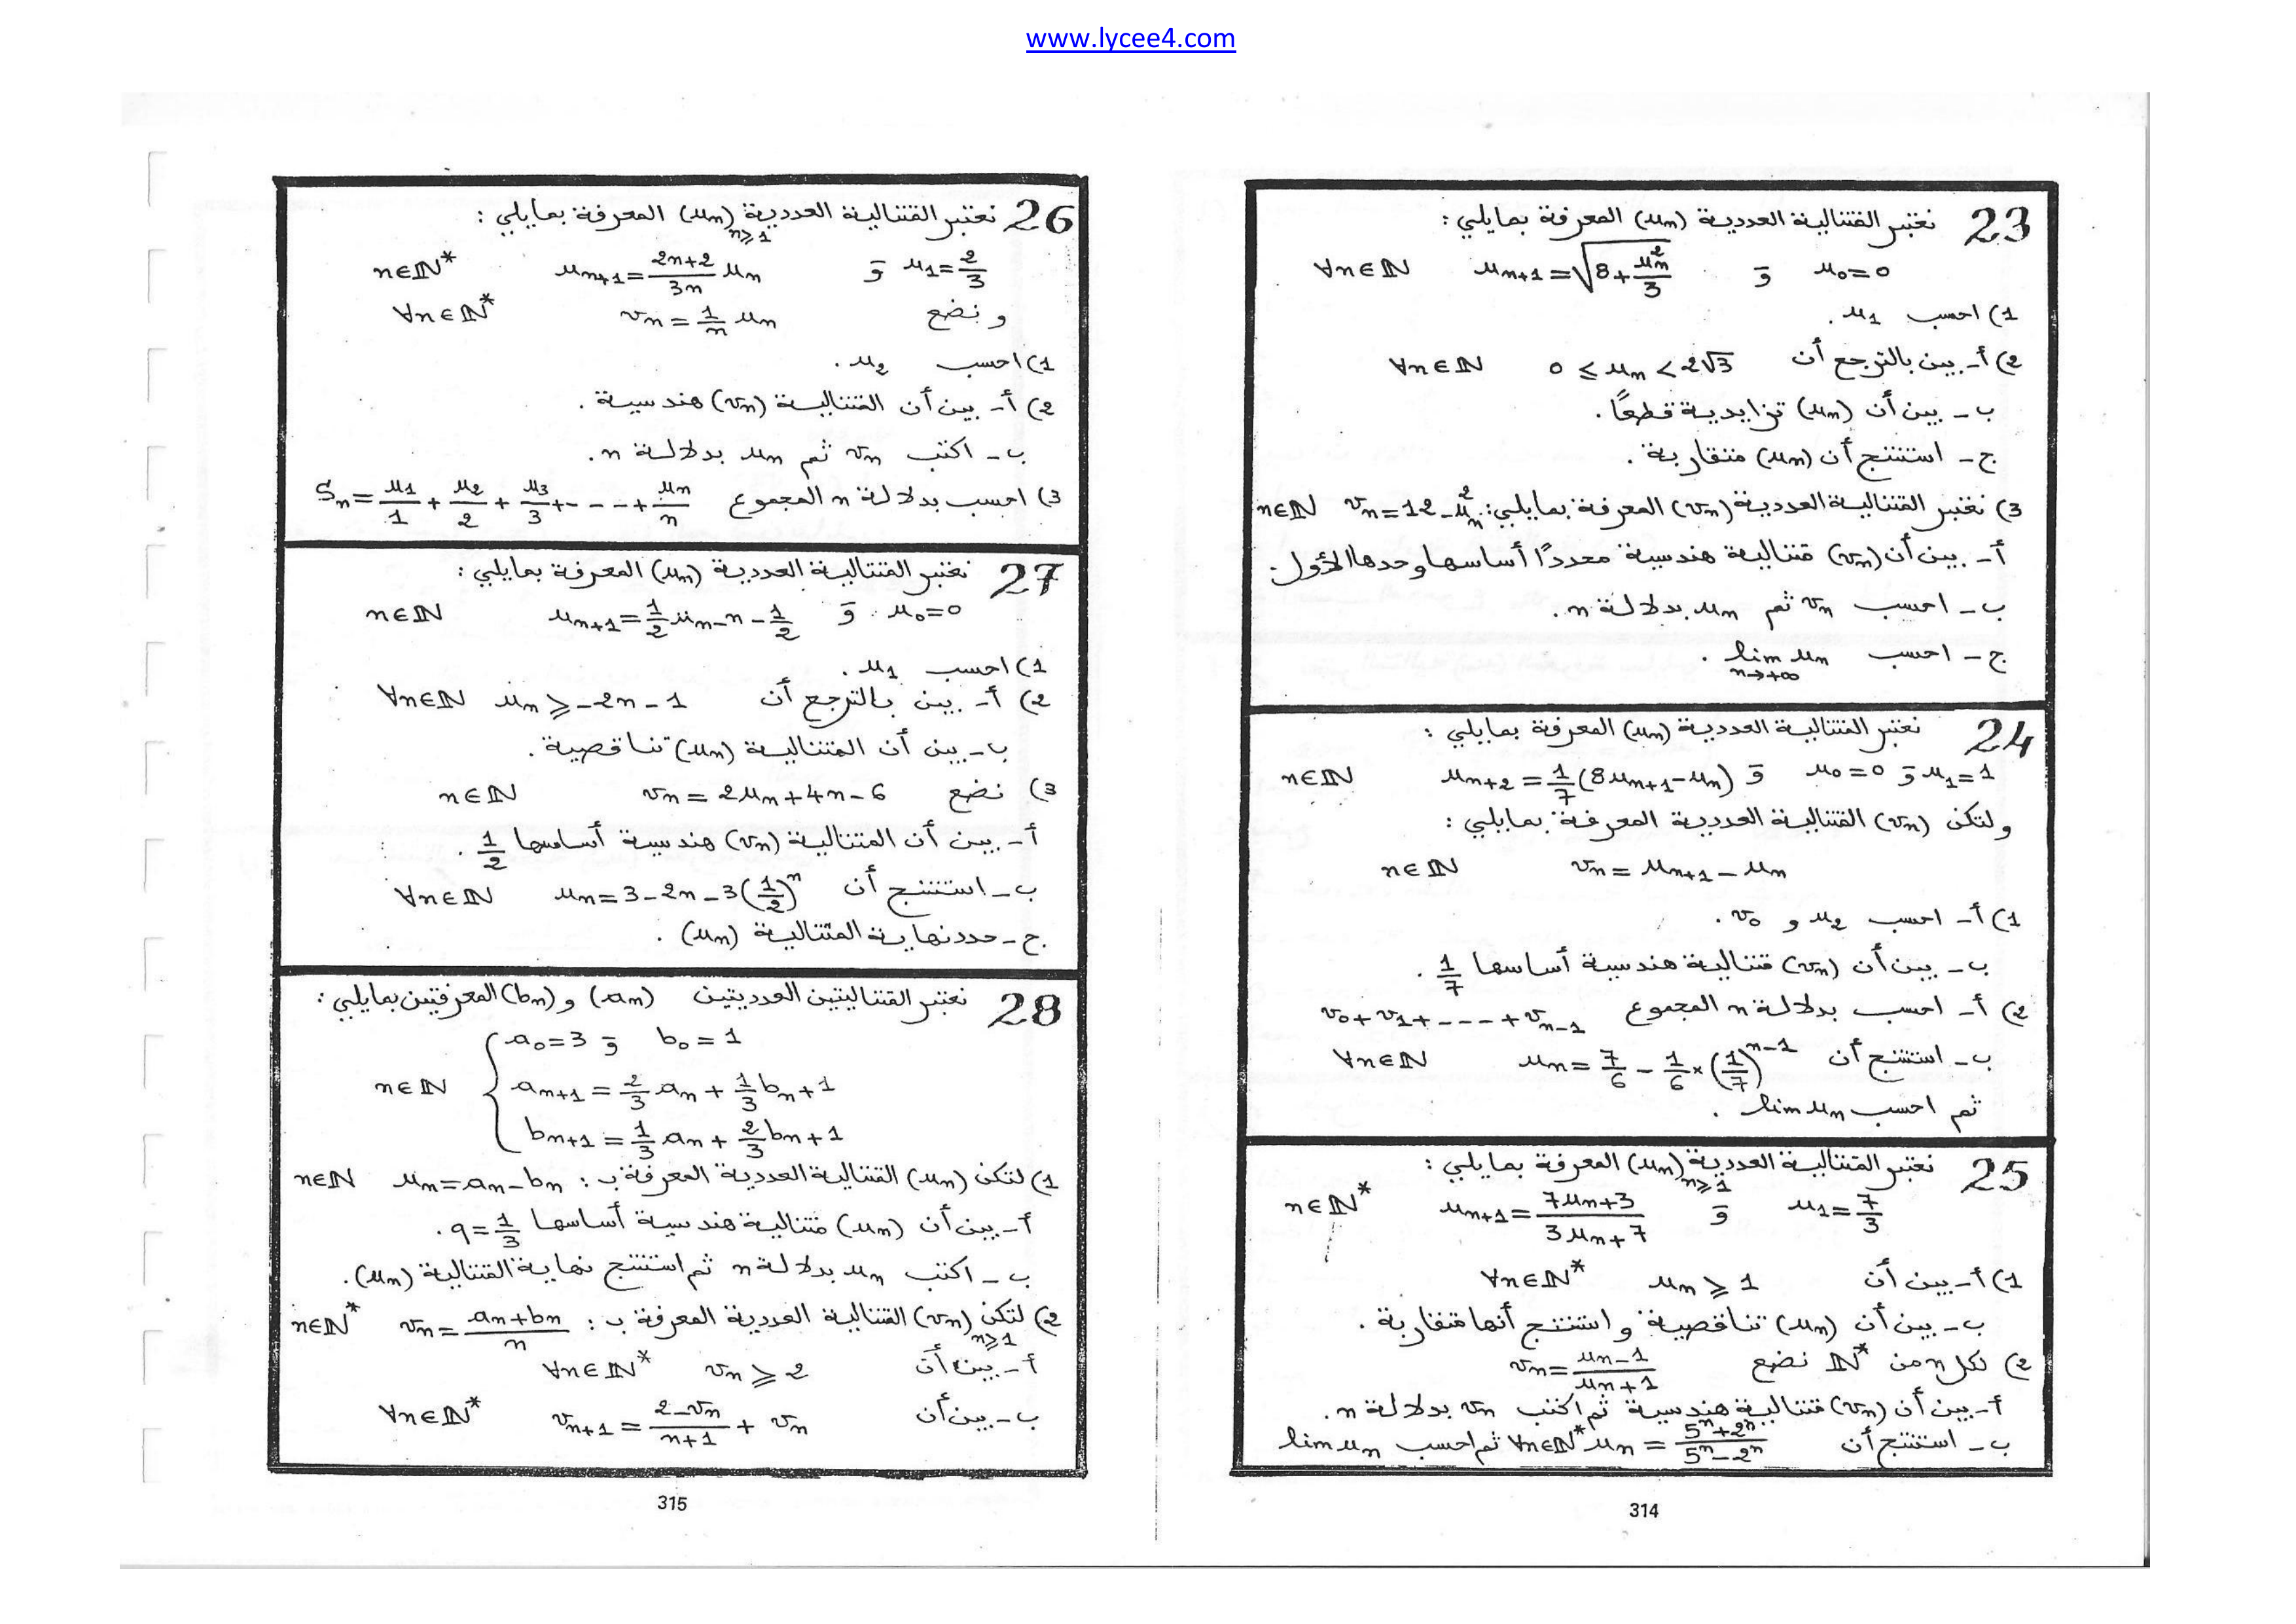 www.lycee4.com
23 نعتبر المتتالية العددية (uₙ) المعرفة بمايلي :
u₀=0 و uₙ₊₁=√(8+uₙ²/3) ∀n∈ℕ
1) احسب u₁ .
2) أ- بين بالترجع أن 0 ≤ uₙ < 2√3 ∀n∈ℕ
ب- بين أن (uₙ) تزايدية قطعًا .
ج- استنتج أن (uₙ) متقاربة .
3) نعتبر المتتالية العددية (vₙ) المعرفة بمايلي : vₙ=12-uₙ² n∈ℕ
أ- بين أن (vₙ) متتالية هندسية محددًا أساسها وحدها الأول .
ب- احسب vₙ ثم uₙ بدلالة n .
ج- احسب lim uₙ n→+∞ .
24 نعتبر المتتالية العددية (uₙ) المعرفة بمايلي :
u₁=1 و u₀=0 و uₙ₊₂=1/7(8uₙ₊₁-uₙ) n∈ℕ
ولتكن (vₙ) المتتالية العددية المعرفة بمايلي :
vₙ=uₙ₊₁-uₙ n∈ℕ
1) أ- احسب u₂ و v₀ .
ب- بين أن (vₙ) متتالية هندسية أساسها 1/7 .
2) أ- احسب بدلالة n المجموع v₀+v₁+----+vₙ₋₁
ب- استنتج أن uₙ=7/6-1/6×(1/7)ⁿ⁻¹ ∀n∈ℕ
ثم احسب lim uₙ .
25 نعتبر المتتالية العددية (uₙ)n≥1 المعرفة بمايلي :
u₁=7/3 و uₙ₊₁=(7uₙ+3)/(3uₙ+7) n∈ℕ*
1) أ- بين أن uₙ ≥ 1 ∀n∈ℕ*
ب- بين أن (uₙ) تناقصية و استنتج أنها متقاربة .
2) لكل n من ℕ* نضع vₙ=(uₙ-1)/(uₙ+1)
أ- بين أن (vₙ) متتالية هندسية ثم اكتب vₙ بدلالة n .
ب- استنتج أن uₙ=(5ⁿ+2ⁿ)/(5ⁿ-2ⁿ) ∀n∈ℕ* ثم احسب lim uₙ
314
26 نعتبر المتتالية العددية (uₙ)n≥1 المعرفة بمايلي :
u₁=2/3 و uₙ₊₁=(2n+2)/3n uₙ n∈ℕ*
و نضع vₙ=1/n uₙ ∀n∈ℕ*
1) احسب u₂ .
2) أ- بين أن المتتالية (vₙ) هندسية .
ب- اكتب vₙ ثم uₙ بدلالة n .
3) احسب بدلالة n المجموع Sₙ=u₁/1+u₂/2+u₃/3+----+uₙ/n
27 نعتبر المتتالية العددية (uₙ) المعرفة بمايلي :
u₀=0 و uₙ₊₁=1/2uₙ-n-1/2 n∈ℕ
1) احسب u₁ .
2) أ- بين بالترجع أن uₙ ≥ -2n-1 ∀n∈ℕ
ب- بين أن المتتالية (uₙ) تناقصية .
3) نضع vₙ=2uₙ+4n-6 n∈ℕ
أ- بين أن المتتالية (vₙ) هندسية أساسها 1/2 .
ب- استنتج أن uₙ=3-2n-3(1/2)ⁿ ∀n∈ℕ
ج- حدد نهاية المتتالية (uₙ) .
28 نعتبر المتتاليتين العدديتين (aₙ) و (bₙ) المعرفتين بمايلي :
a₀=3 و b₀=1
aₙ₊₁=2/3aₙ+1/3bₙ+1 n∈ℕ
bₙ₊₁=1/3aₙ+2/3bₙ+1
1) لتكن (uₙ) المتتالية العددية المعرفة ب : uₙ=aₙ-bₙ n∈ℕ
أ- بين أن (uₙ) متتالية هندسية أساسها q=1/3 .
ب- اكتب uₙ بدلالة n ثم استنتج نهاية المتتالية (uₙ) .
2) لتكن (vₙ)n≥1 المتتالية العددية المعرفة ب : vₙ=(aₙ+bₙ)/n n∈ℕ*
أ- بين أن vₙ ≥ 2 ∀n∈ℕ*
ب- بين أن vₙ₊₁=(2-vₙ)/(n+1)+vₙ ∀n∈ℕ*
315